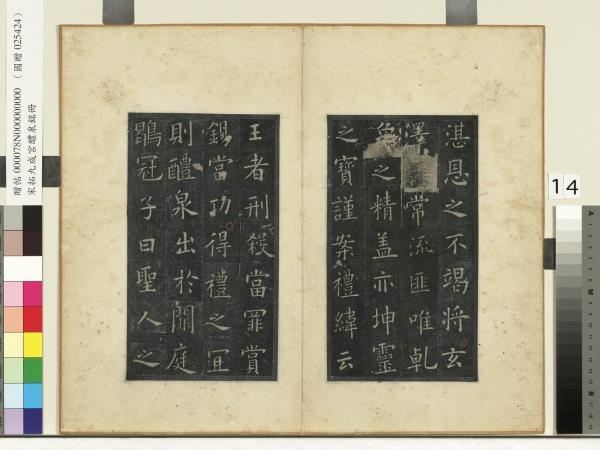 湛恩之不竭將玄
澤常流匪唯乹
象之精蓋亦坤靈
之寶謹案禮緯云
王者刑殺當罪賞
錫當功得禮之宜
則醴泉出於闕庭
鶡冠子曰聖人之
贈帖 000078N000000000 (國贈 025424)
宋拓九成宮醴泉銘冊
14
A
M
B